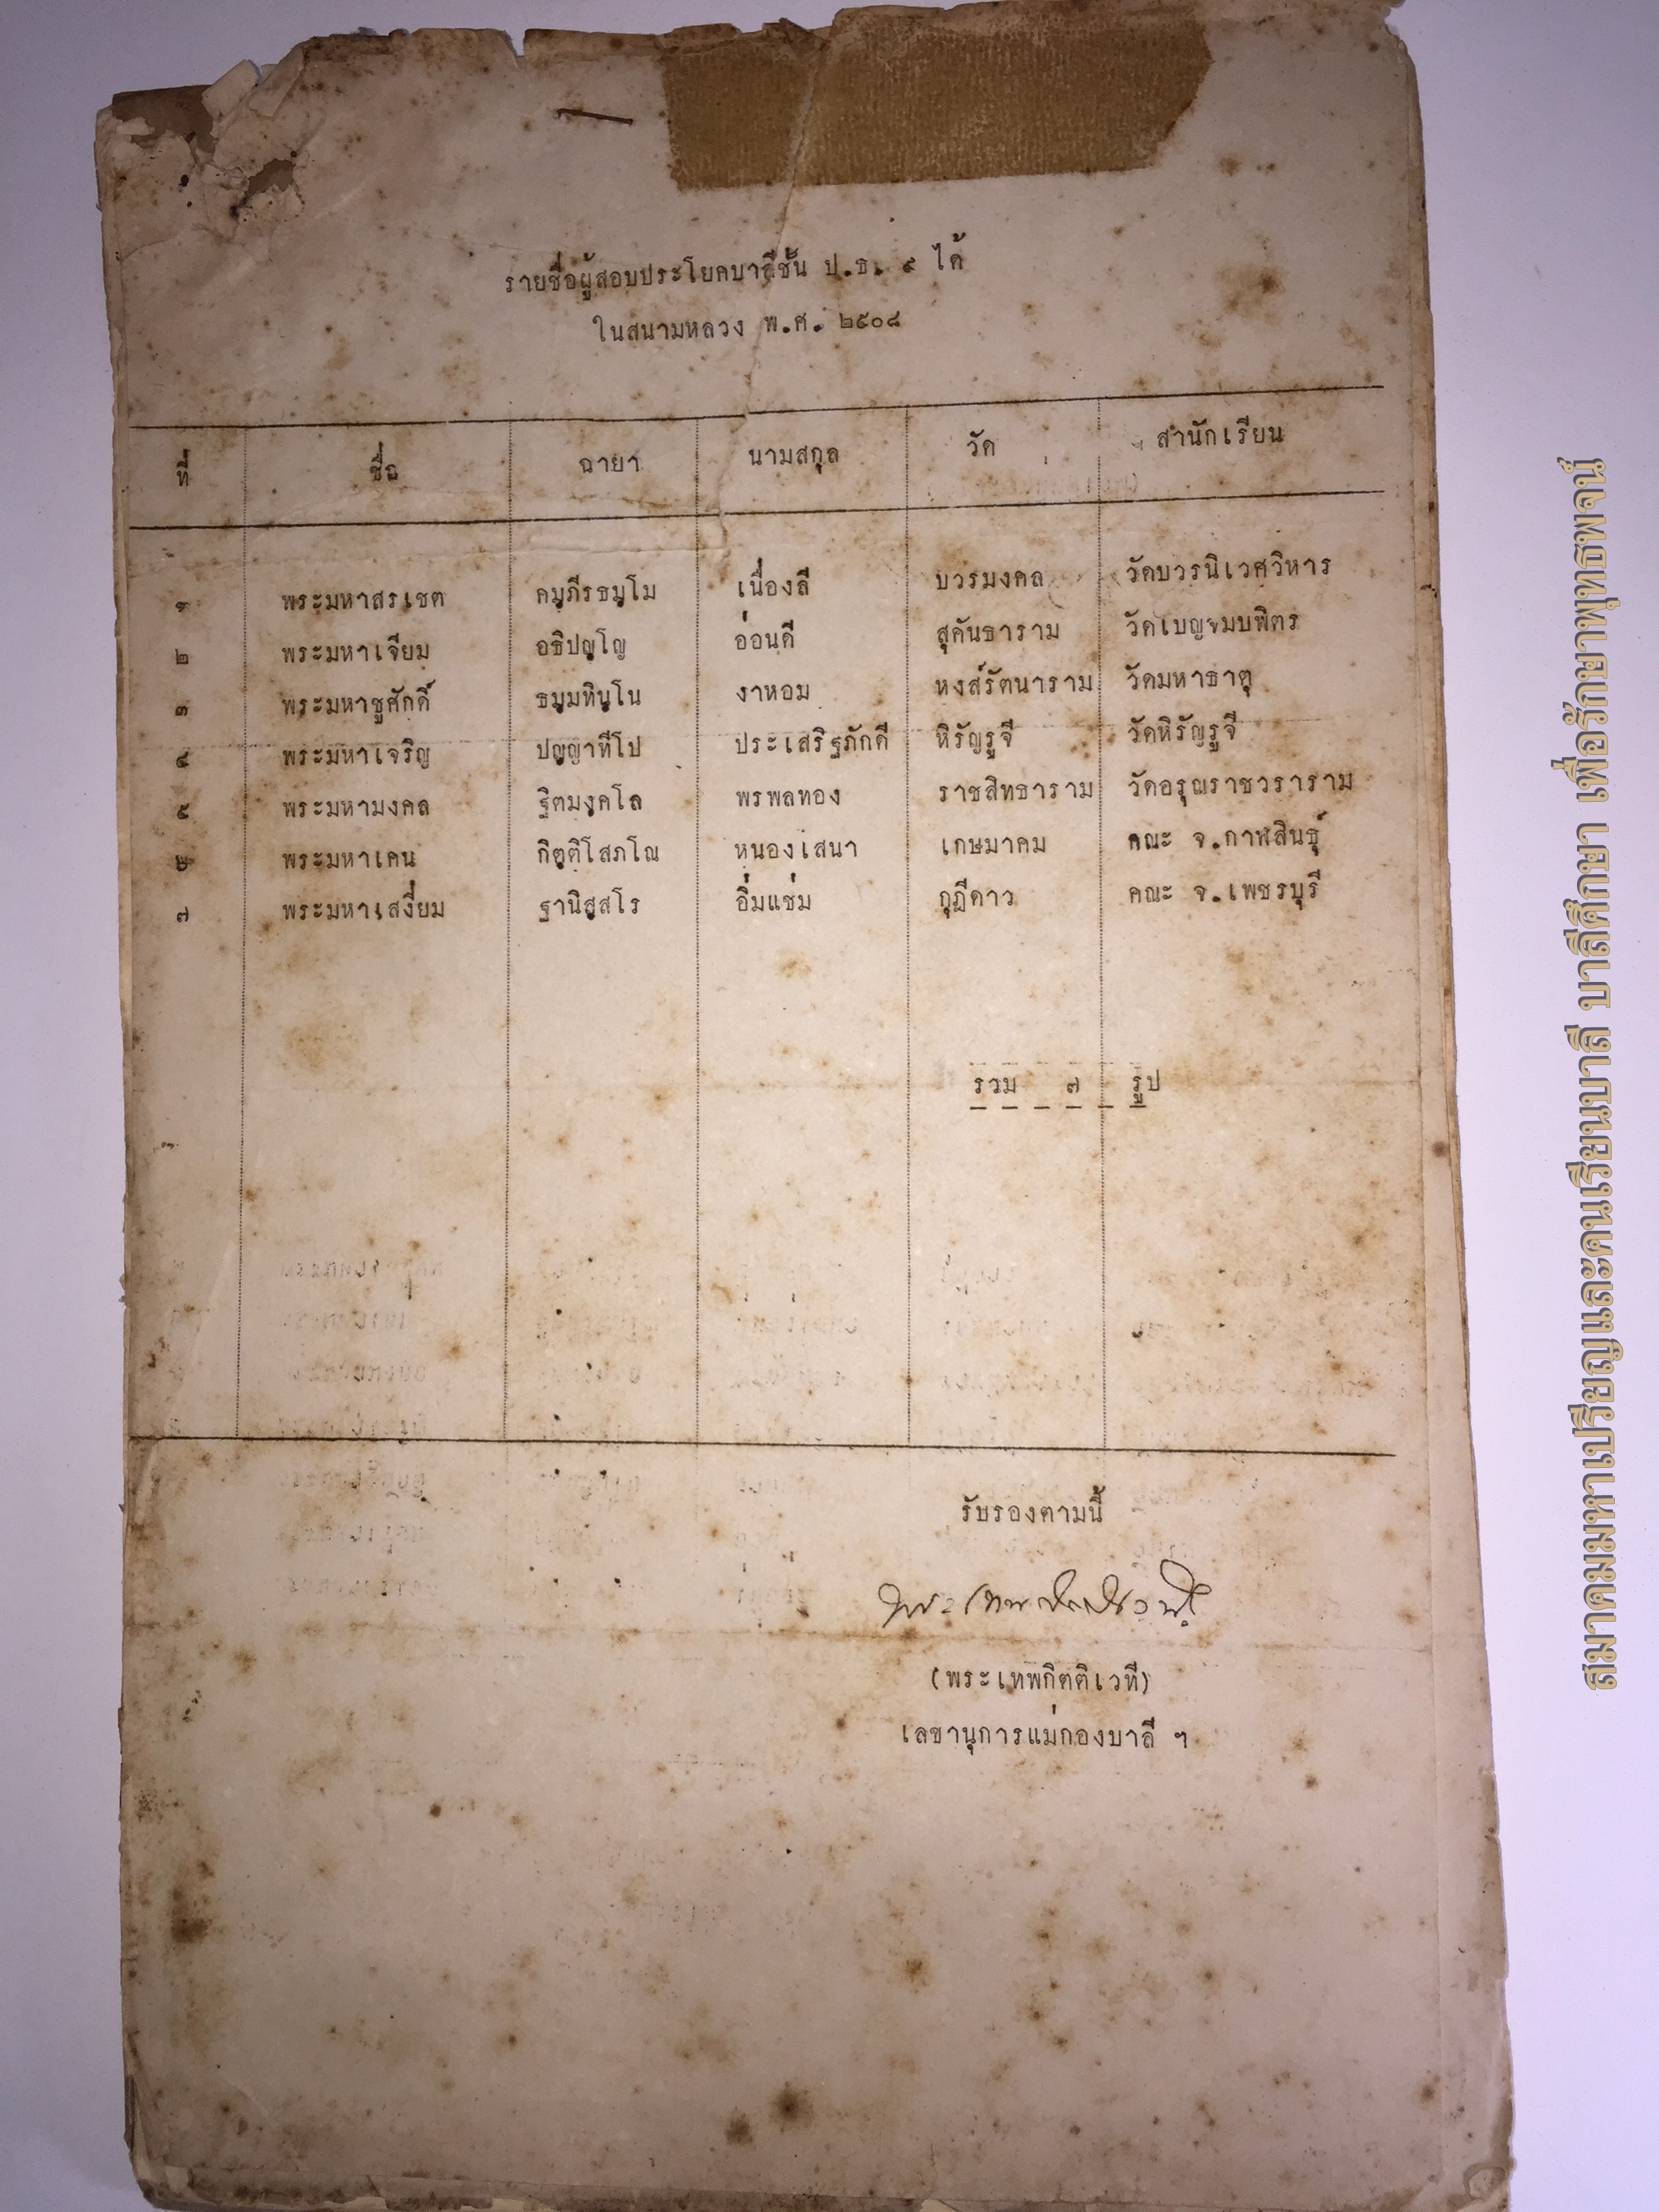 รายชื่อผู้สอบประโยคบาลีชั้น ป.ธ. ๙ ได้
ในสนามหลวง พ.ศ. ๒๕๐๘
ที่ ชื่อ ฉายา นามสกุล วัด สำนักเรียน
๑ พระมหาสรเชต คมฺภีรธมฺโม เนื่องลี บวรมงคล วัดบวรนิเวศวิหาร
๒ พระมหาเจียม อธิปญฺโญ อ่อนดี สุคันธาราม วัดเบญจมบพิตร
๓ พระมหาชูศักดิ์ ธมฺมทินฺโน งาหอม หงส์รัตนาราม วัดมหาธาตุ
๔ พระมหาเจริญ ปญฺญาทีโป ประเสริฐภักดี หิรัญรูจี วัดหิรัญรูจี
๕ พระมหามงคล ฐิตมงฺคโล พรพลทอง ราชสิทธาราม วัดอรุณราชวราราม
๖ พระมหาเคน กิตฺติโสภโณ หนองเสนา เกษมาคม คณะ จ.กาฬสินธุ์
๗ พระมหาเสงี่ยม ฐานิสฺสโร อิ่มแช่ม กุฎีดาว คณะ จ.เพชรบุรี
รวม ๗ รูป
รับรองตามนี้
(พระเทพกิตติเวที)
เลขานุการแม่กองบาลี ฯ
สมาคมมหาเปรียญและคนเรียนบาลี บาลีศึกษา เพื่อรักษาพุทธพจน์